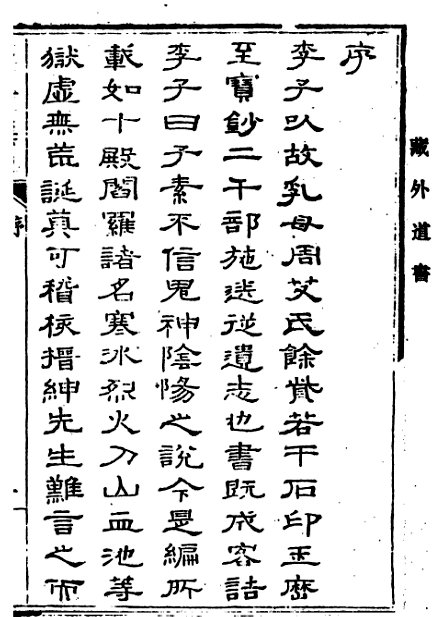 藏外道書
序
李子以故乳母周艾氏餘貲若干石印玉歷
至寶鈔二千部施送從遺志也書既成客詰
李子曰子素不信鬼神陰陽之說今是編所
載如十殿閻羅諸名寒冰烈火刀山血池等
獄虛無荒誕真可稽核搢紳先生難言之而
序